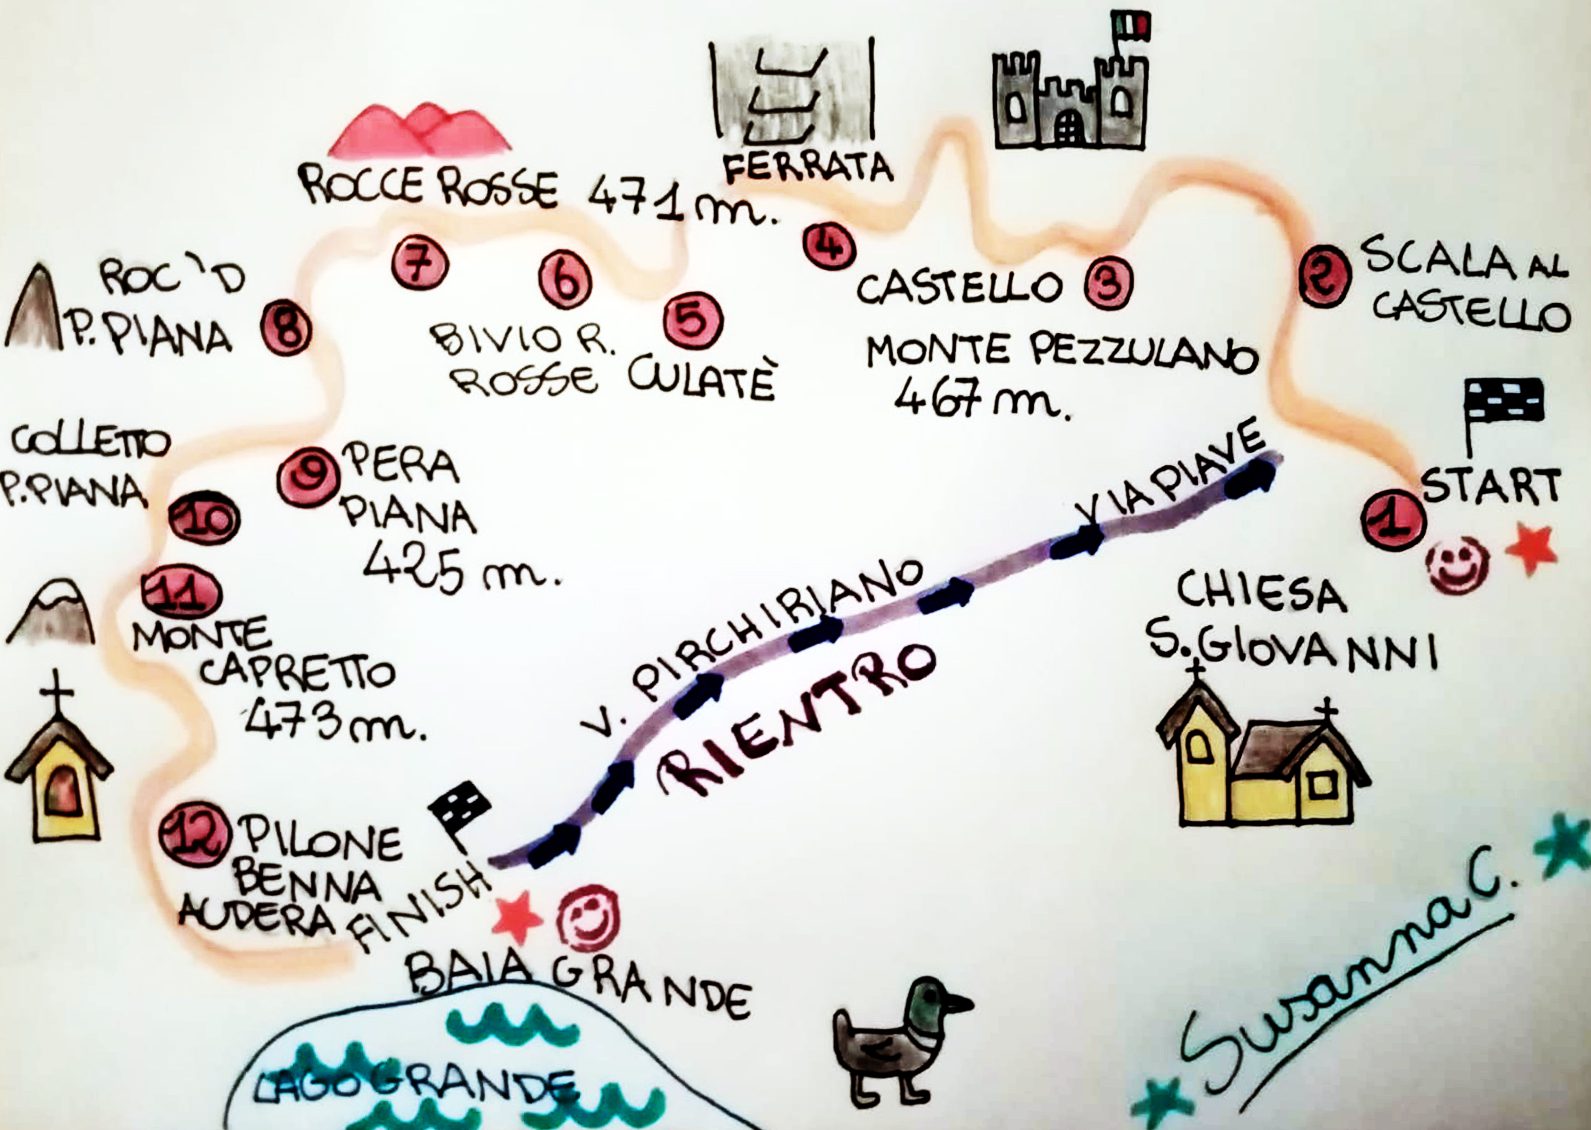 FERRATA
ROCCE ROSSE 471 m.
ROC'D
P.PIANA
8
7
6
BIVIO R.
ROSSE
5
CULATÈ
4
CASTELLO 3
MONTE PEZZULANO
467 m.
2
SCALA AL
CASTELLO
START
1
CHIESA
S.GIOVANNI
COLLETTO
P.PIANA
10
9
PERA
PIANA
425 m.
11
MONTE
CAPRETTO
473 m.
12
PILONE
BENNA
AUDERA
FINISH
BAIA GRANDE
LAGO GRANDE
V. PIRCHIRIANO
VIA PIAVE
RIENTRO
Susanna C.